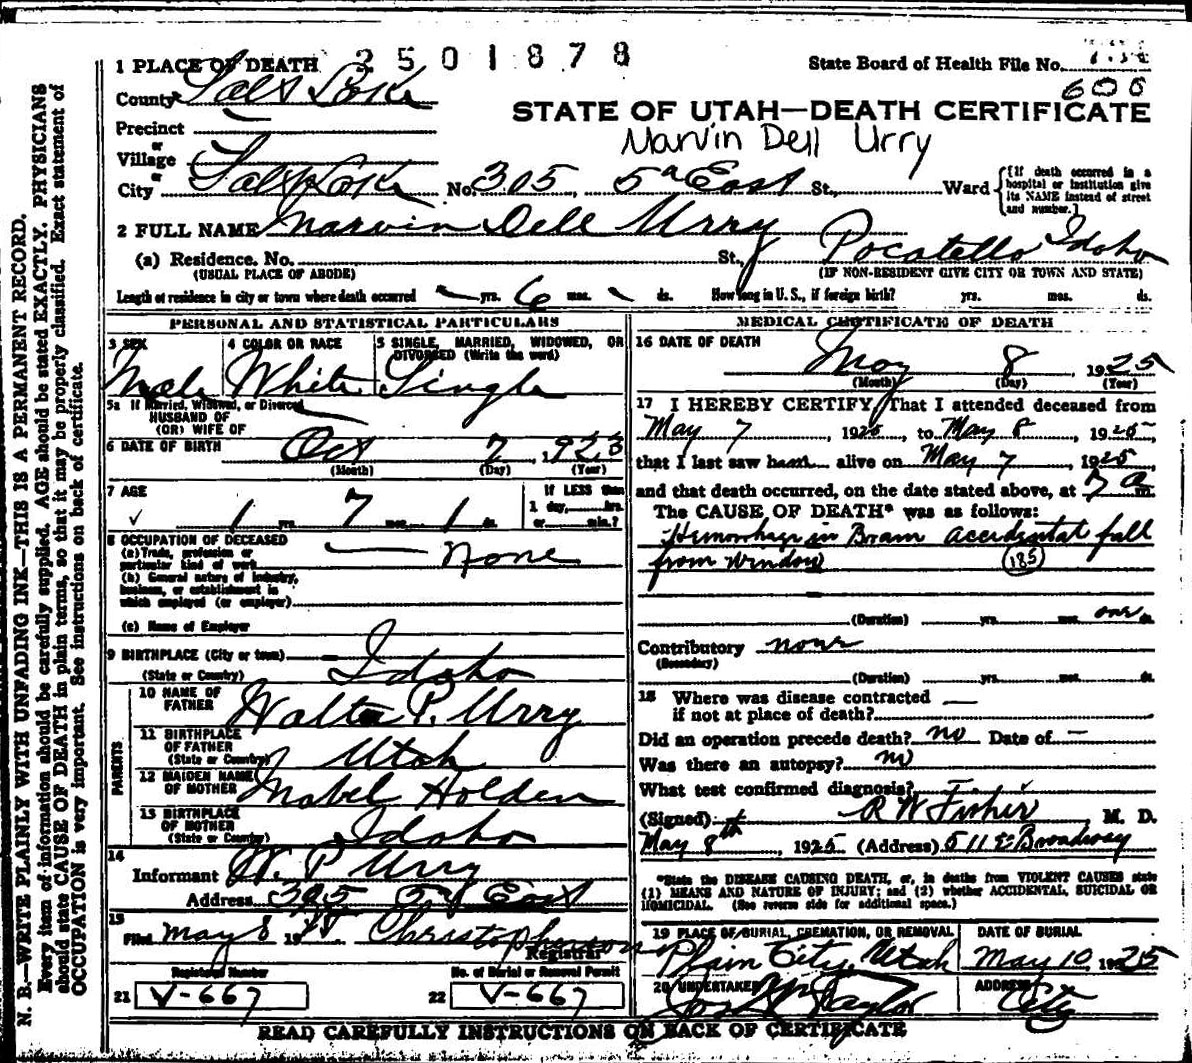 1 PLACE OF DEATH 2501878
State Board of Health File No.
606
County Salt Lake
STATE OF UTAH—DEATH CERTIFICATE
Marvin Dell Urry
Precinct
or
Village
or
City Salt Lake No. 305 5th East St., Ward
{If death occurred in a hospital or institution give its NAME instead of street and number.}
2 FULL NAME Marvin Dell Urry
(a) Residence. No. St., Pocatello Idaho
(USUAL PLACE OF ABODE) (IF NON-RESIDENT GIVE CITY OR TOWN AND STATE)
Length of residence in city or town where death occurred yrs. 6 mos. ds. How long in U.S., if foreign birth? yrs. mos. ds.
PERSONAL AND STATISTICAL PARTICULARS
3 SEX 4 COLOR OR RACE 5 SINGLE, MARRIED, WIDOWED, OR DIVORCED (Write the word)
Male White Single
5a If Married, Widowed, or Divorced
HUSBAND OF
(OR) WIFE OF
6 DATE OF BIRTH Oct 7, 1923
(Month) (Day) (Year)
7 AGE If LESS than
1 yrs. 7 mos. 1 ds. 1 day, hrs.
or min.?
8 OCCUPATION OF DECEASED
(a) Trade, profession or particular kind of work — none
(b) General nature of industry, business, or establishment in which employed (or employer)
(c) Name of Employer
9 BIRTHPLACE (City or town)
(State or Country) Idaho
PARENTS
10 NAME OF FATHER Walter P. Urry
11 BIRTHPLACE OF FATHER
(State or Country) Utah
12 MAIDEN NAME OF MOTHER Mabel Holden
13 BIRTHPLACE OF MOTHER
(State or Country) Idaho
14
Informant W. P Urry
Address 305 5th East
15
Filed May 8 19 Christopherson
Registrar
Registered Number No. of Burial or Removal Permit
21 V-667 22 V-667
MEDICAL CERTIFICATE OF DEATH
16 DATE OF DEATH
May 8, 1925
(Month) (Day) (Year)
17 I HEREBY CERTIFY, That I attended deceased from
May 7, 1925, to May 8, 1925
that I last saw him alive on May 7, 1925
and that death occurred, on the date stated above, at 7 a m.
The CAUSE OF DEATH* was as follows:
Hemorrhage in Brain accidental fall
from window (185)
(Duration) yrs. mos. one ds.
Contributory none
(Secondary)
(Duration) yrs. mos. ds.
18 Where was disease contracted —
if not at place of death?
Did an operation precede death? no Date of —
Was there an autopsy? no
What test confirmed diagnosis? —
(Signed) R W Fisher, M. D.
May 8th, 1925 (Address) 511 E Broadway
*State the DISEASE CAUSING DEATH, or, in deaths from VIOLENT CAUSES state
(1) MEANS AND NATURE OF INJURY; and (2) whether ACCIDENTAL, SUICIDAL OR
HOMICIDAL. (See reverse side for additional space.)
19 PLACE OF BURIAL, CREMATION, OR REMOVAL DATE OF BURIAL
Plain City, Utah May 10, 1925
20 UNDERTAKER Taylor ADDRESS City
READ CAREFULLY INSTRUCTIONS ON BACK OF CERTIFICATE
N. B.—WRITE PLAINLY WITH UNFADING INK—THIS IS A PERMANENT RECORD.
Every item of information should be carefully supplied. AGE should be stated EXACTLY. PHYSICIANS
should state CAUSE OF DEATH in plain terms, so that it may be properly classified. Exact statement of
OCCUPATION is very important. See instructions on back of certificate.